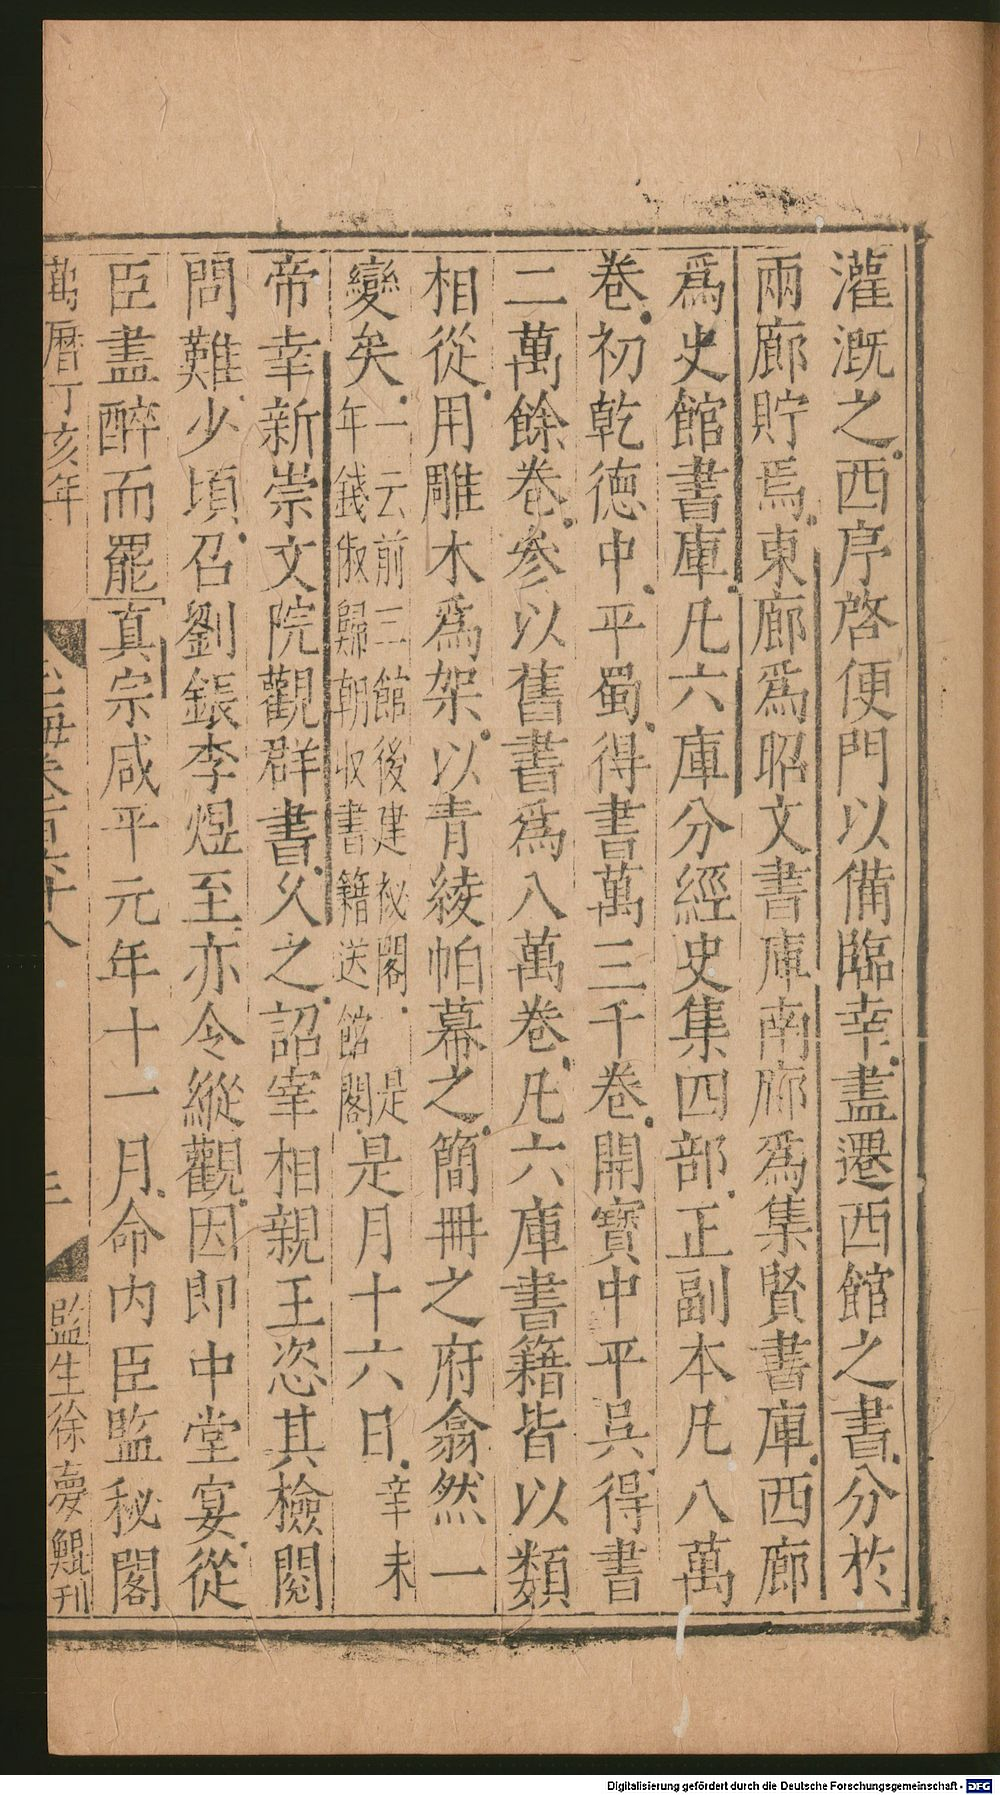 灌溉之西序啓便門以備臨幸盡遷西館之書分於
兩廊貯焉東廊爲昭文書庫南廊爲集賢書庫西廊
爲史館書庫凡六庫分經史集四部正副本凡八萬
卷初乾德中平蜀得書萬三千卷開寶中平吳得書
二萬餘卷參以舊書爲八萬卷凡六庫書籍皆以類
相從用雕木爲架以青綾帕幕之簡冊之府翕然一
變矣
一云前三館後建祕閣是
年錢俶歸朝収書籍送館閣
是月十六日辛未
帝幸新崇文院觀群書久之詔宰相親王恣其檢閱
問難少頃召劉鋹李煜至亦令縱觀因即中堂宴從
臣盡醉而罷真宗咸平元年十一月命内臣監秘閣
萬曆丁亥年
三
監生徐夢鯤刊
Digitalisierung gefördert durch die Deutsche Forschungsgemeinschaft - DFG